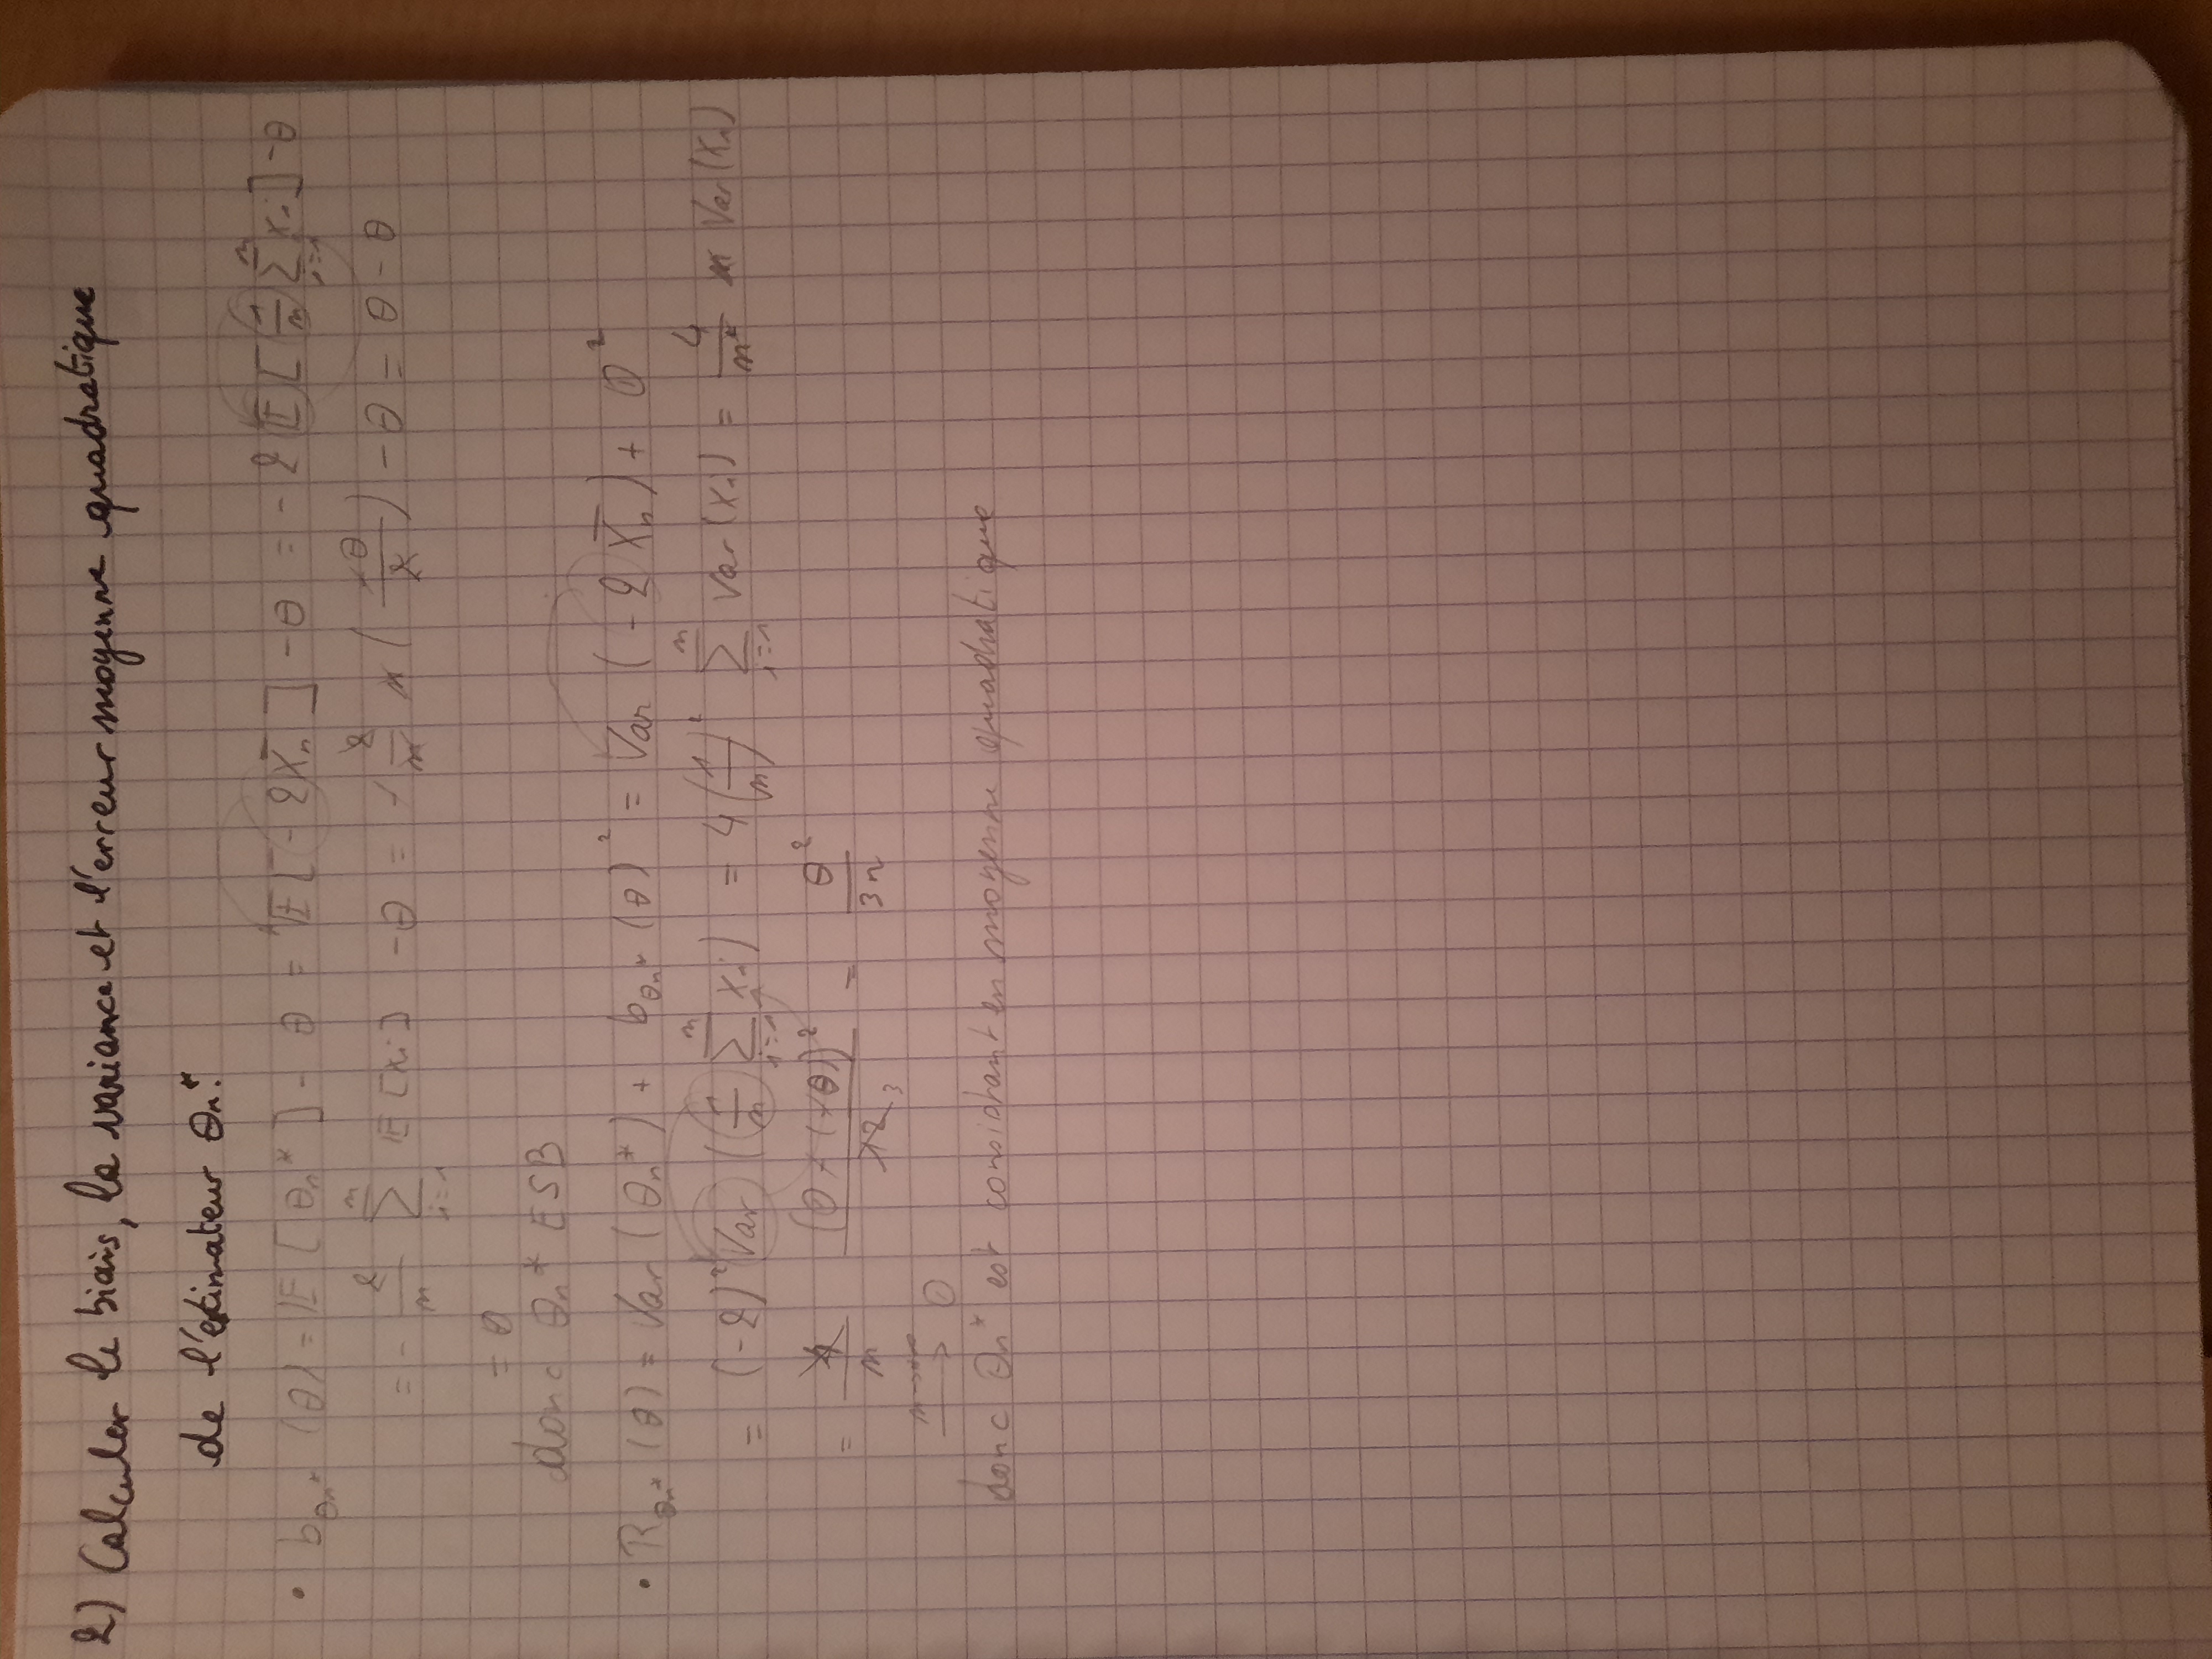 2) Calculer le biais, la variance et l'erreur moyenne quadratique
de l'estimateur θn*.
• b_θn* (θ) = E[θn*] - θ = E[-2X̄n] - θ = -2 E[1/n ∑_{i=1}^{n} Xi] - θ
= - 2/n ∑_{i=1}^{n} E[Xi] - θ = - 2/n n (-θ/2) - θ = θ - θ
= 0
donc θn* ESB
• R_θn* (θ) = Var(θn*) + b_θn* (θ)² = Var(-2 X̄n) + 0²
= (-2)² Var(1/n ∑_{i=1}^{n} Xi) = 4(1/n)² ∑_{i=1}^{n} Var(Xi) = 4/n² n Var(X1)
= 4/n (0-(-θ))²/12 3 = θ²/3n
n→+∞ → 0
donc θn* est consistant en moyenne quadratique